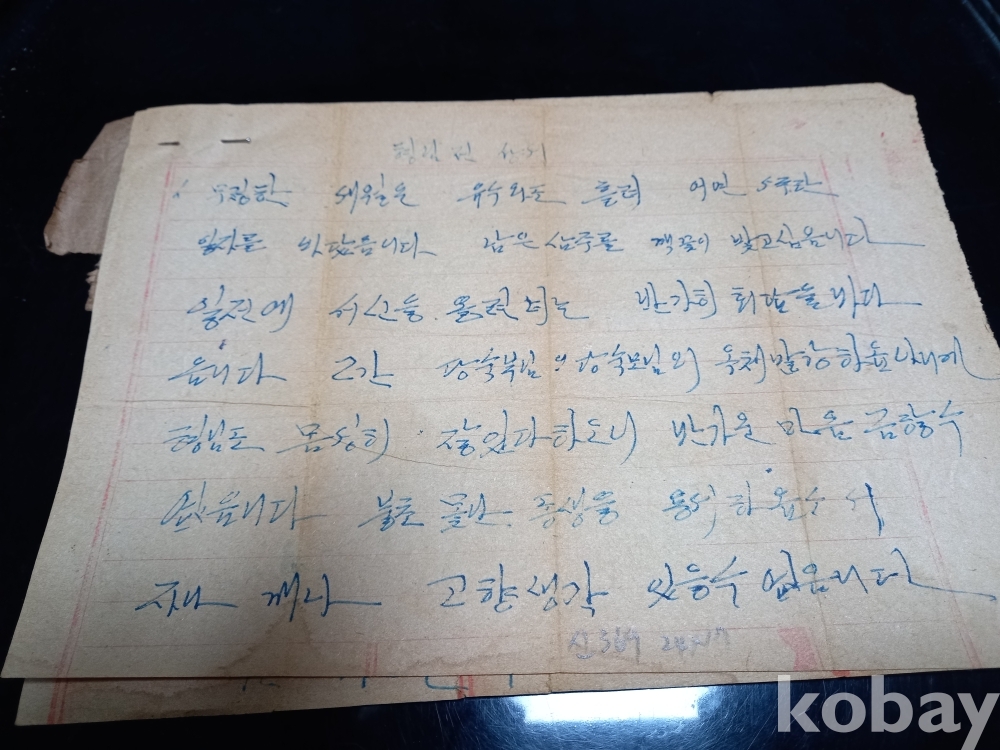 형님 전 상서
무정한 세월은 유수와도 흘러 어언
일자를 바닸읍니다 남은 빛고싶읍니다
일전에 서신을 올렸더는 반가히 회답을 바다
읍니다 그간 당숙부님 당숙모님의 옥체 하옵나니에
형님도 몸성히 잘있다하오니 반가운 마음 금할수
없읍니다 불초 못난 동생을 용서하옵소서
자나 깨나 고향생각 있을수 없읍니다
kobay